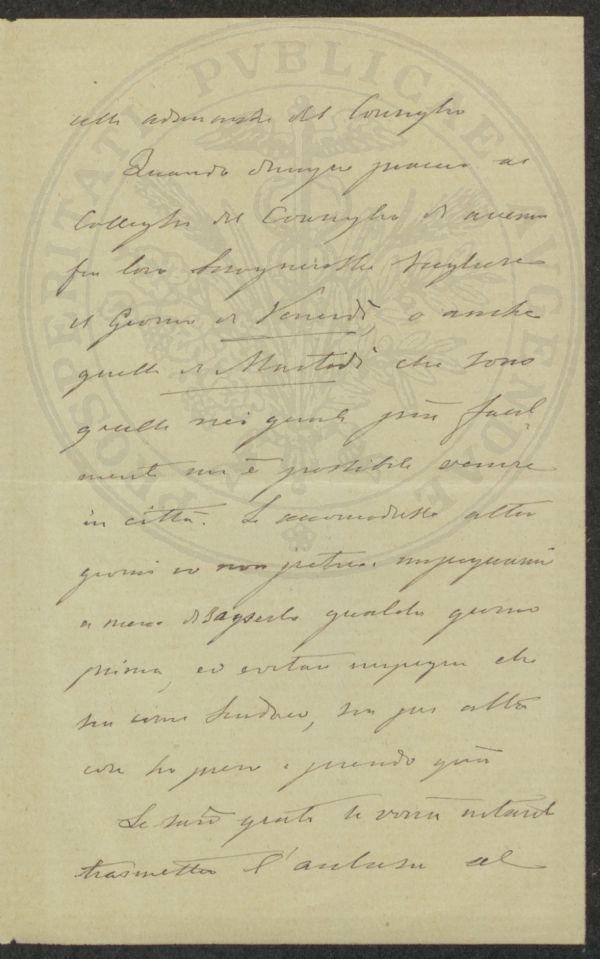 PROSPERITATI PVBLICAE AVGENDAE
alle adunanze del Consiglio
Quando dunque piaccia ai
Colleghi del Consiglio di avermi
fra loro bisognerebbe scegliere
il Giorno di Venerdì, o anche
quello di Martedì che sono
quelli nei quali più facil-
mente mi è possibile venire
in città. Se accomodasse altro
giorno io non potrei impegnarmi
a meno di saperlo qualche giorno
prima, ed evitare impegni che
sia come Sindaco, sia per altre
cose ho preso o prendo quà
Le sarò grato se vorrà
trasmettere l'acclusa al